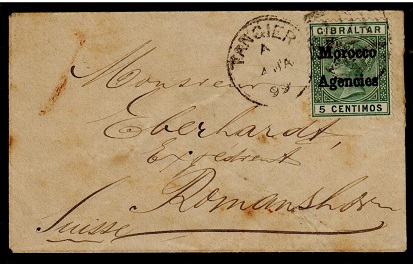 TANGIER
A
JA
GIBRALTAR
Morocco
Agencies
5 CENTIMOS
Monsieur
Eberhardt,
Expedient
Romanshorn
Suisse